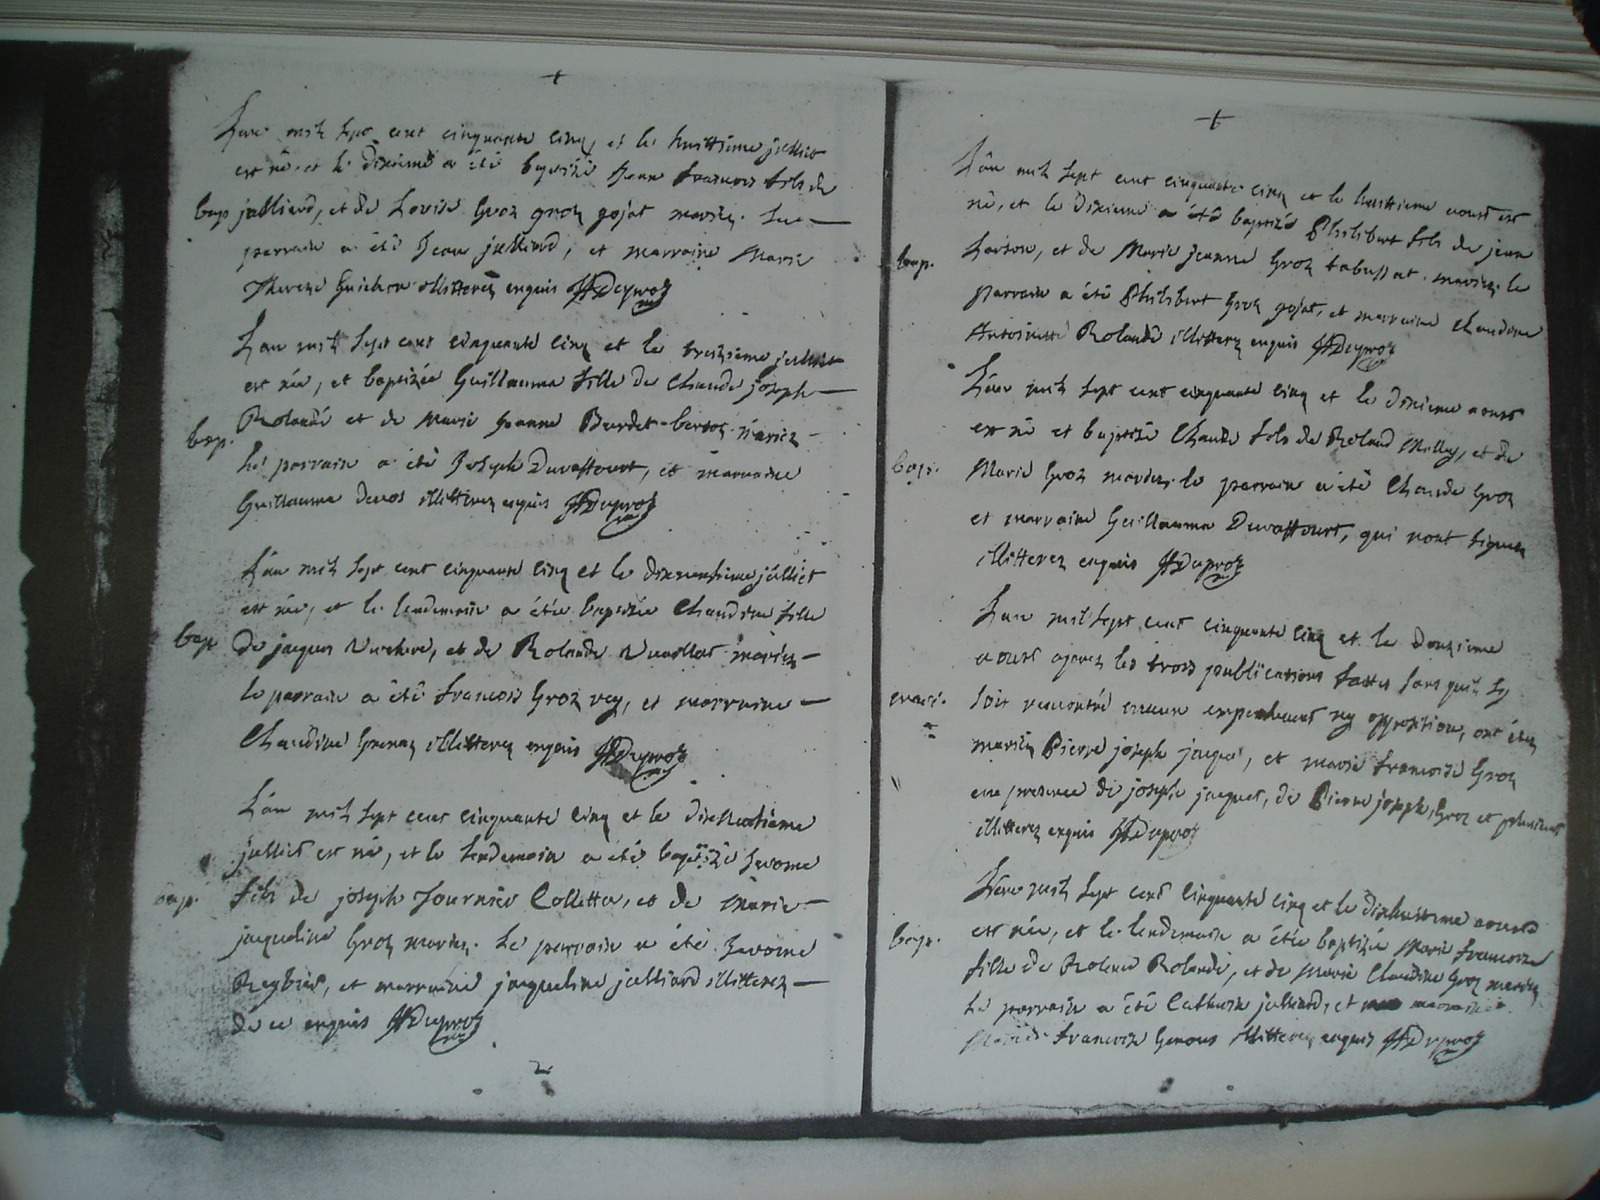 +
L'an mil sept cent cinquante cinq, et le huittieme julliet
est né, et le dixieme a été baptisé Jean francois fils de
bap julliard, et de Louise Groz groz gojat mariez. Le
parrain a été Jean julliard, et marraine Marie
Therese Guichon illitterez enquis Duproz
L'an mil sept cent cinquante cinq et le treizieme julliet
est née, et baptizée Guillauma fille de Claude joseph
bap. Rolandé et de Marie Jeanne Burdet mariez
Le parrain a été Joseph Duvaffourt, et marraine
Guillauma devos illitterez enquis Duproz
L'an mil sept cent cinquante cinq et le dixneufvieme julliet
est née, et le lendemain a étée baptizée Claudine fille
bap de jacques et de Rolande mariez
le parrain a été francois Groz rey, et marraine
Claudine illitterez enquis Duproz
L'an mil sept cent cinquante cinq et le
julliet est né, et le lendemain a été baptizé Jerome
bap. fils de joseph fournier Collette, et de Marie
jaqueline Groz mariez. Le parrain a été Jerome
et marraine jaqueline julliard illitterez
de ce enquis Duproz
+
L'an mil sept cent cinquante cinq et le huittieme aoust est
né, et le dixieme a été baptizé Philibert fils de jean
bap. et de Marie jeanne Groz tabussat mariez. le
parrain a été Philibert Groz gojat, et marraine Claudine
Antoinette Rolandé illitterez enquis Duproz
L'an mil sept cent cinquante cinq et le dixieme aoust
est né et baptizé Claude fils de Roland Milley, et de
bap. Marie Groz mariez. le parrain a été Claude Groz
et marraine Guillauma Duvaffourt, qui n'ont signez
illitterez enquis Duproz
L'an mil sept cent cinquante cinq et le douzieme
aoust apres les trois publications faittes sans qu'il s'y
mari. soit rencontré aucun empechement ny opposition, ont étez
mariez Pierre joseph jacquet, et marie francoise Groz
en presence de joseph jacquet, de Pierre joseph Groz et plusieurs
illitterez enquis Duproz
L'an mil sept cent cinquante cinq et le dixhuittieme aoust
bap. est née, et le lendemain a étée baptizée Marie francoise
fille de Roland Rolandé, et de Marie Claudine Groz mariez
Le parrain a été julliard, et marraine
Marie francoise illitterez enquis Duproz